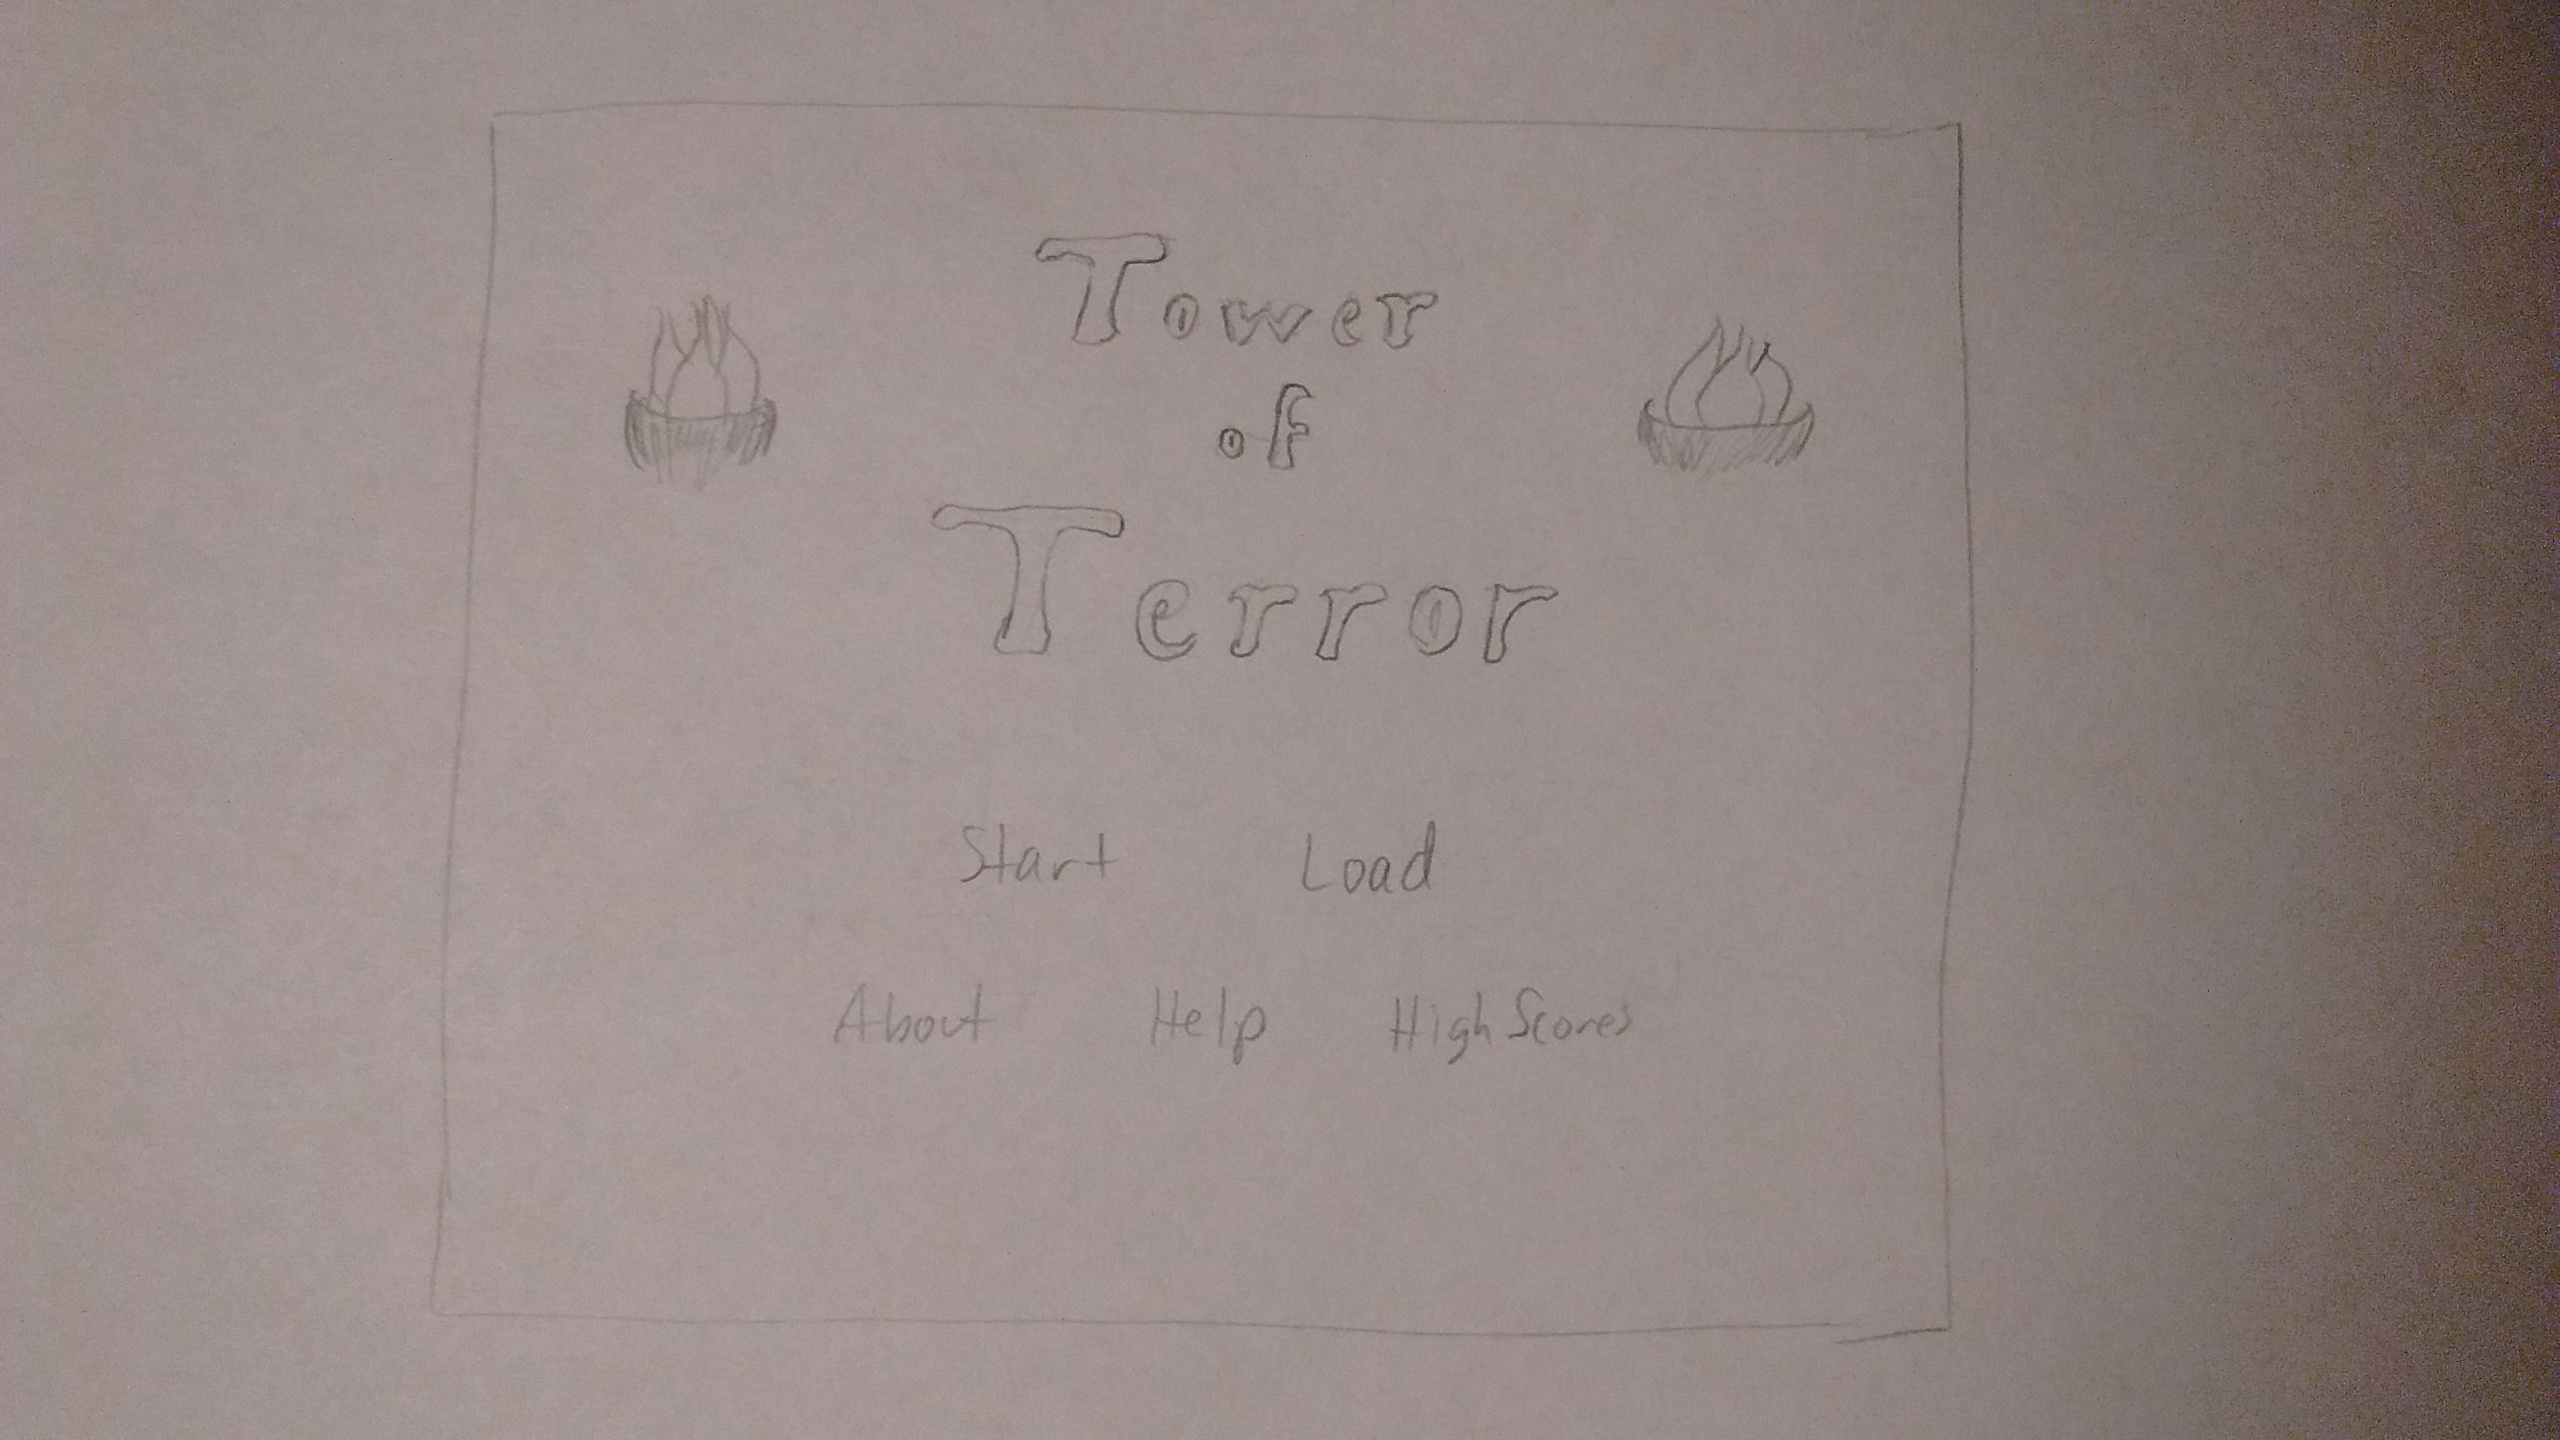 Tower
of
Terror
Start Load
About Help High Scores